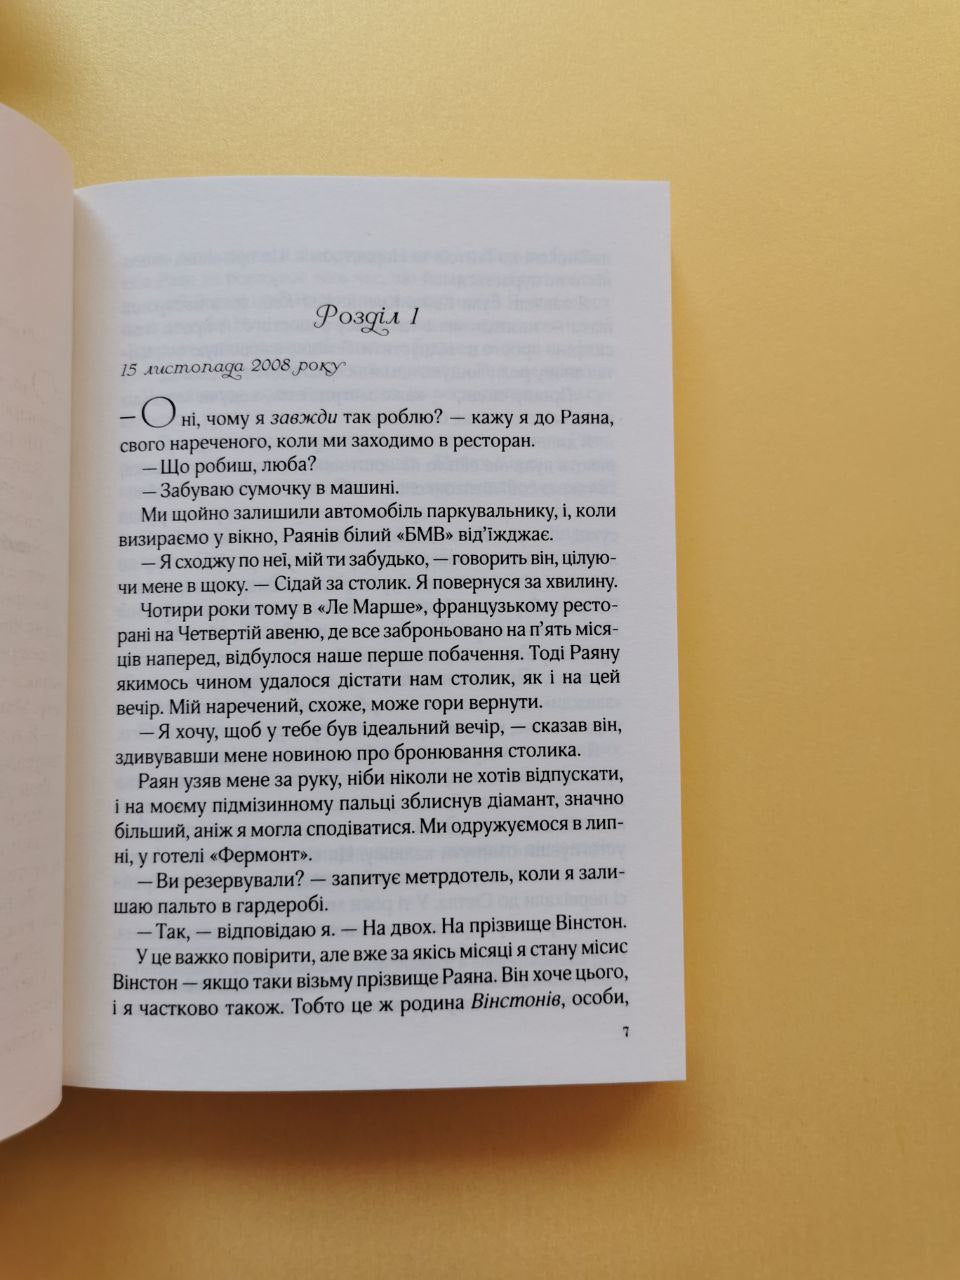 Розділ 1
15 листопада 2008 року
— О ні, чому я завжди так роблю? — кажу я до Раяна,
свого нареченого, коли ми заходимо в ресторан.
— Що робиш, люба?
— Забуваю сумочку в машині.
Ми щойно залишили автомобіль паркувальнику, і, коли
визираємо у вікно, Раянів білий «БМВ» від’їжджає.
— Я сходжу по неї, мій ти забудько, — говорить він, цілую-
чи мене в щоку. — Сідай за столик. Я повернуся за хвилину.
Чотири роки тому в «Ле Марше», французькому ресто-
рані на Четвертій авеню, де все заброньовано на п’ять міся-
ців наперед, відбулося наше перше побачення. Тоді Раяну
якимось чином удалося дістати нам столик, як і на цей
вечір. Мій наречений, схоже, може гори вернути.
— Я хочу, щоб у тебе був ідеальний вечір, — сказав він,
здивувавши мене новиною про бронювання столика.
Раян узяв мене за руку, ніби ніколи не хотів відпускати,
і на моєму підмізинному пальці зблиснув діамант, значно
більший, аніж я могла сподіватися. Ми одружуємося в лип-
ні, у готелі «Фермонт».
— Ви резервували? — запитує метрдотель, коли я зали-
шаю пальто в гардеробі.
— Так, — відповідаю я. — На двох. На прізвище Вінстон.
У це важко повірити, але вже за якісь місяці я стану місис
Вінстон — якщо таки візьму прізвище Раяна. Він хоче цього,
і я частково також. Тобто це ж родина Вінстонів, особи,
7